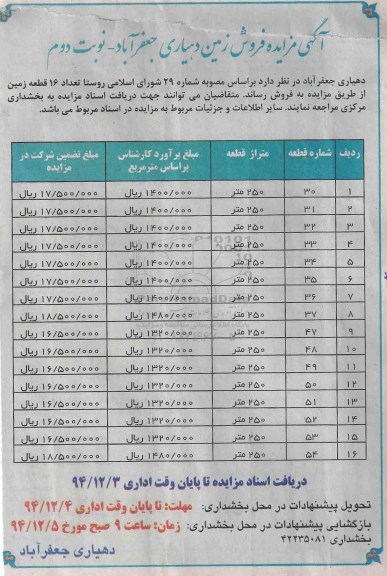 آگهی مزایده فروش زمین دهیاری جعفرآباد-نوبت دوم
دهیاری جعفرآباد در نظر دارد براساس مصوبه شماره ۲۹ شورای اسلامی روستا تعداد ۱۶ قطعه زمین
از طریق مزایده به فروش رساند. متقاضیان می توانند جهت دریافت اسناد مزایده به بخشداری
مرکزی مراجعه نمایند. سایر اطلاعات و جزئیات مربوط به مزایده در اسناد مربوط می باشد.
ردیف شماره قطعه متراژ قطعه مبلغ برآورد کارشناس براساس مترمربع مبلغ تضمین شرکت در مزایده
۱ ۳۰ ۲۵۰ متر ۱۴۰۰/۰۰۰ ریال ۱۷/۵۰۰/۰۰۰ ریال
۲ ۳۱ ۲۵۰ متر ۱۴۰۰/۰۰۰ ریال ۱۷/۵۰۰/۰۰۰ ریال
۳ ۳۲ ۲۵۰ متر ۱۴۰۰/۰۰۰ ریال ۱۷/۵۰۰/۰۰۰ ریال
۴ ۳۳ ۲۵۰ متر ۱۴۰۰/۰۰۰ ریال ۱۷/۵۰۰/۰۰۰ ریال
۵ ۳۴ ۲۵۰ متر ۱۴۰۰/۰۰۰ ریال ۱۷/۵۰۰/۰۰۰ ریال
۶ ۳۵ ۲۵۰ متر ۱۴۰۰/۰۰۰ ریال ۱۷/۵۰۰/۰۰۰ ریال
۷ ۳۶ ۲۵۰ متر ۱۴۰۰/۰۰۰ ریال ۱۷/۵۰۰/۰۰۰ ریال
۸ ۳۷ ۲۵۰ متر ۱۴۸۰/۰۰۰ ریال ۱۸/۵۰۰/۰۰۰ ریال
۹ ۴۷ ۲۵۰ متر ۱۳۲۰/۰۰۰ ریال ۱۶/۵۰۰/۰۰۰ ریال
۱۰ ۴۸ ۲۵۰ متر ۱۳۲۰/۰۰۰ ریال ۱۶/۵۰۰/۰۰۰ ریال
۱۱ ۴۹ ۲۵۰ متر ۱۳۲۰/۰۰۰ ریال ۱۶/۵۰۰/۰۰۰ ریال
۱۲ ۵۰ ۲۵۰ متر ۱۳۲۰/۰۰۰ ریال ۱۶/۵۰۰/۰۰۰ ریال
۱۳ ۵۱ ۲۵۰ متر ۱۳۲۰/۰۰۰ ریال ۱۶/۵۰۰/۰۰۰ ریال
۱۴ ۵۲ ۲۵۰ متر ۱۳۲۰/۰۰۰ ریال ۱۶/۵۰۰/۰۰۰ ریال
۱۵ ۵۳ ۲۵۰ متر ۱۳۲۰/۰۰۰ ریال ۱۶/۵۰۰/۰۰۰ ریال
۱۶ ۵۴ ۲۵۰ متر ۱۴۸۰/۰۰۰ ریال ۱۸/۵۰۰/۰۰۰ ریال
دریافت اسناد مزایده تا پایان وقت اداری ۹۴/۱۲/۳
تحویل پیشنهادات در محل بخشداری: مهلت: تا پایان وقت اداری ۹۴/۱۲/۴
بازگشایی پیشنهادات در محل بخشداری: زمان: ساعت ۹ صبح مورخ ۹۴/۱۲/۵
بخشداری ۴۲۲۳۵۰۸۱
دهیاری جعفرآباد